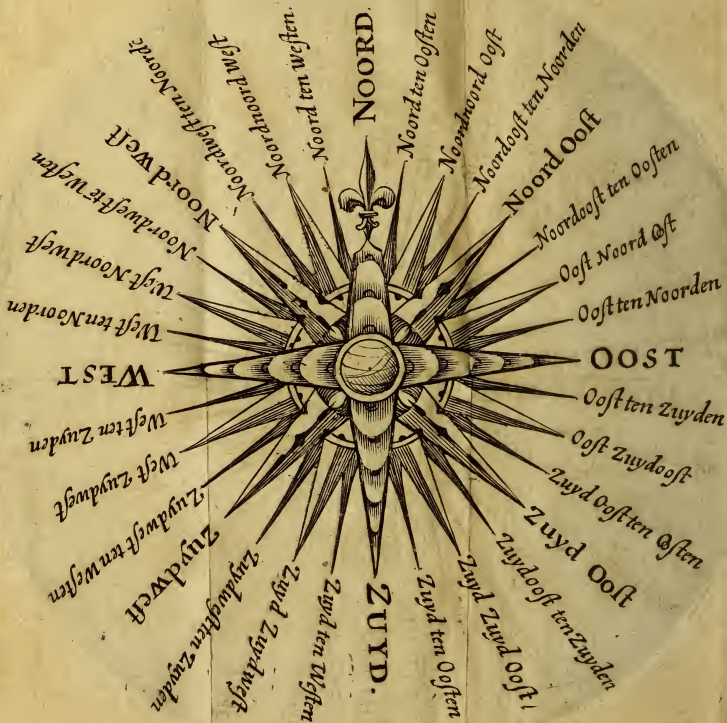 NOORD.
Noord ten Ooſten
Noordnoord Ooſt
Noordooſt ten Noorden
Noord Ooſt
Noordooſt ten Ooſten
Ooſt Noord Ooſt
Ooſt ten Noorden
OOST
Ooſt ten Zuyden
Ooſt Zuydooſt
Zuyd Ooſt ten Ooſten
Zuyd Ooſt
Zuydooſt ten Zuyden
Zuyd Zuyd Ooſt
Zuyd ten Ooſten
ZUYD.
Zuyd ten Weſten
Zuyd Zuydweſt
Zuydweſt ten Zuyden
Zuydweſt
Zuydweſt ten Weſten
Weſt Zuydweſt
Weſt ten Zuyden
WEST
Weſt ten Noorden
Weſt Noordweſt
Noordweſt tē Weſten
Noord Weſt
Noordweſt ten Noordē
Noordnoord Weſt
Noord ten Weſten.